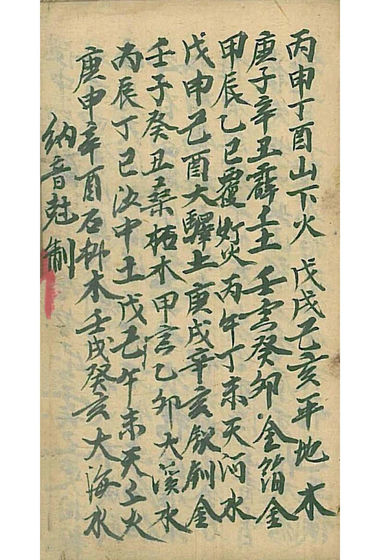 丙申丁酉山下火 戊戌己亥平地木
庚子辛丑霹上土 壬寅癸卯金箔金
甲辰乙巳覆灯火 丙午丁未天河水
戊申己酉大驛土 庚戌辛亥釵釧金
壬子癸丑桑柘木 甲寅乙卯大溪水
丙辰丁巳沙中土 戊己午未天上火
庚申辛酉石榴木 壬戌癸亥大海水
納音尅制